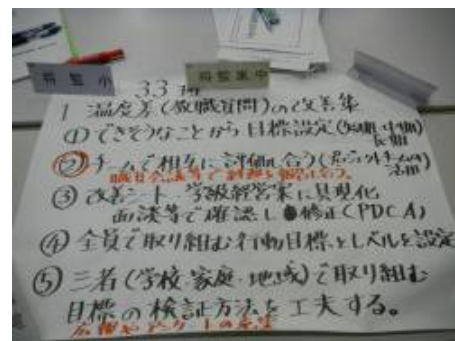 将監小
将監東中
33班
1 温度差(教職員間)の改善策
① できそうなことから目標設定(短期・中期・長期)
② チームで相互に評価し合う(プロジェクトチームの活用)
職員会議等で
③ 改善シート 学級経営案に具現化
面談等で確認し 修正(PDCA)
④ 全員で取り組む行動目標とレベルを設定
⑤ 三者(学校・家庭・地域)で取り組む
目標の検証方法を工夫する。
広報やアンケートの